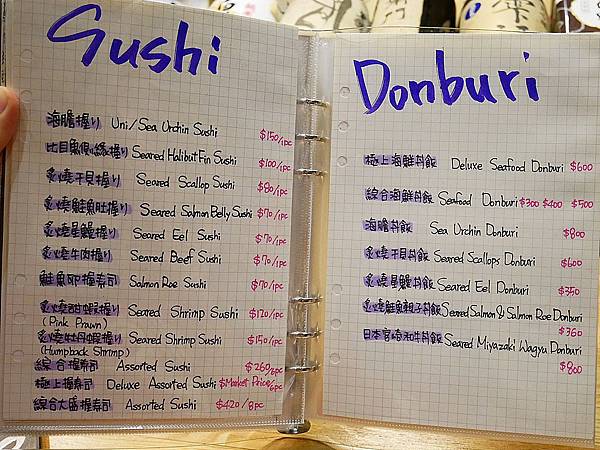 Sushi
海膽握り Uni/Sea Urchin Sushi $150/1pc
比目魚鰭緣握り Seared Halibut Fin Sushi $100/1pc
炙燒干貝握り Seared Scallop Sushi $80/1pc
炙燒鮭魚肚握り Seared Salmon Belly Sushi $70/1pc
炙燒星鰻握り Seared Eel Sushi $70/1pc
炙燒牛肉握り Seared Beef Sushi $70/1pc
鮭魚卵握壽司 Salmon Roe Sushi $70/1pc
炙燒甜蝦握り Seared Shrimp Sushi $120/1pc
(Pink Prawn)
炙燒牡丹蝦握り Seared Shrimp Sushi $150/1pc
(Humpback Shrimp)
綜合握壽司 Assorted Sushi $260/5pc
極上握壽司 Deluxe Assorted Sushi $Market Price/6pc
綜合大盛握壽司 Assorted Sushi $420/8pc
Donburi
極上海鮮丼飯 Deluxe Seafood Donburi $600
綜合海鮮丼飯 Seafood Donburi $300 $400 $500
海膽丼飯 Sea Urchin Donburi $800
炙燒干貝丼飯 Seared Scallops Donburi $600
炙燒星鰻丼飯 Seared Eel Donburi $350
炙燒鮭魚親子丼飯 Seared Salmon & Salmon Roe Donburi
$360
日本宮崎和牛丼飯 Seared Miyazaki Wagyu Donburi
$800